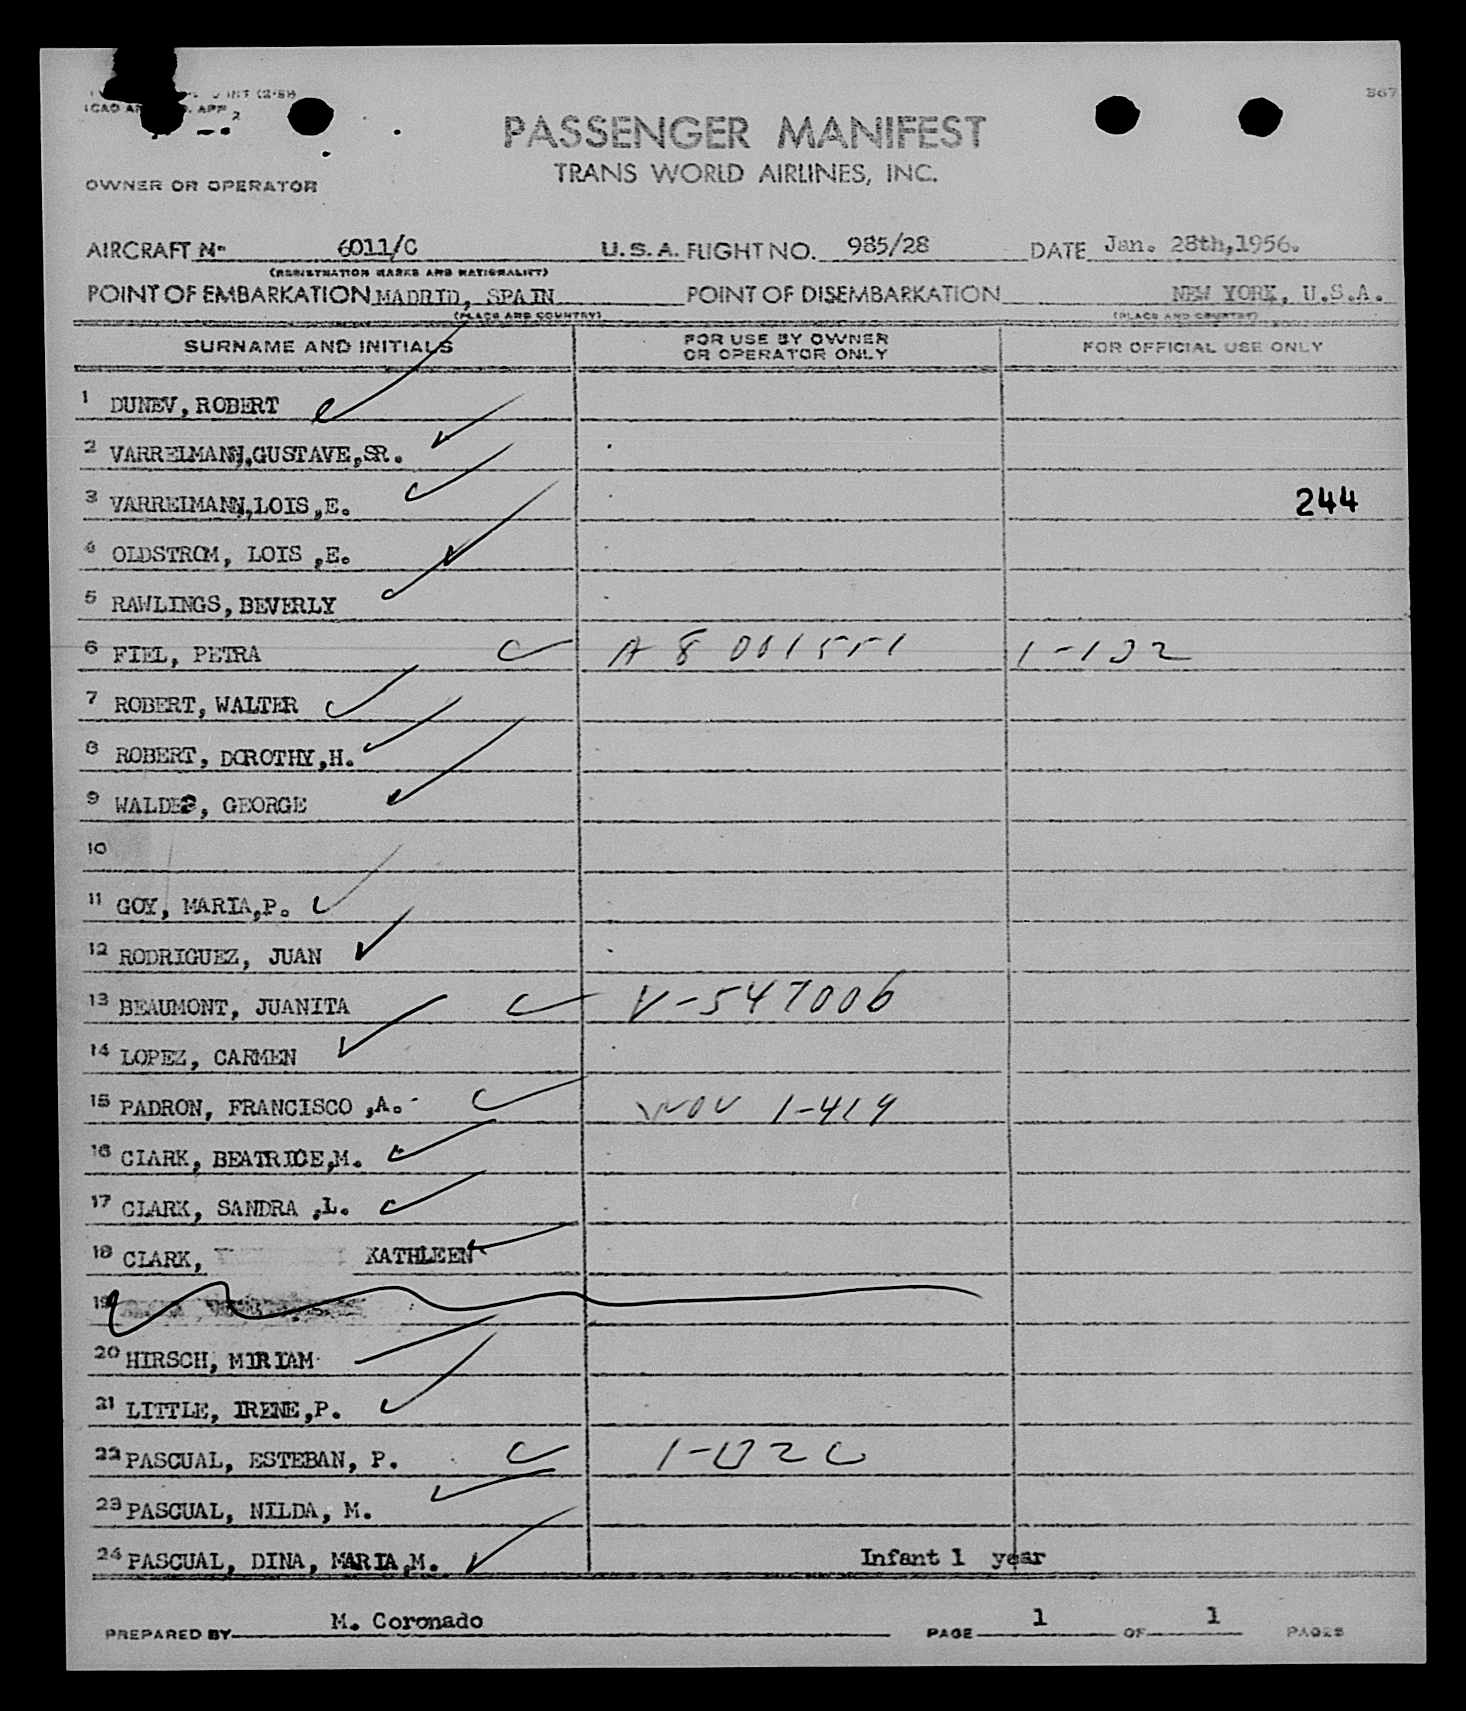 ICAO APP 2
867
PASSENGER MANIFEST
TRANS WORLD AIRLINES, INC.
OWNER OR OPERATOR
AIRCRAFT Nº 6011/C U.S.A. FLIGHT NO. 985/28 DATE Jan. 28th,1956.
(REGISTRATION MARKS AND NATIONALITY)
POINT OF EMBARKATION MADRID, SPAIN POINT OF DISEMBARKATION NEW YORK, U.S.A.
(PLACE AND COUNTRY) (PLACE AND COUNTRY)
SURNAME AND INITIALS FOR USE BY OWNER OR OPERATOR ONLY FOR OFFICIAL USE ONLY
1 DUNEV, ROBERT
2 VARRELMANN,GUSTAVE,SR.
3 VARRELMANN,LOIS,E. 244
4 OLDSTROM, LOIS ,E.
5 RAWLINGS, BEVERLY
6 FIEL, PETRA A 8 001551 1-132
7 ROBERT, WALTER
8 ROBERT, DOROTHY,H.
9 WALDES, GEORGE
10
11 GOY, MARIA,P.
12 RODRIGUEZ, JUAN
13 BEAUMONT, JUANITA V-547006
14 LOPEZ, CARMEN
15 PADRON, FRANCISCO ,A. 1-419
16 CLARK, BEATRICE,M.
17 CLARK, SANDRA ,L.
18 CLARK, KATHLEEN
19
20 HIRSCH, MIRIAM
21 LITTLE, IRENE,P.
22 PASCUAL, ESTEBAN, P.
23 PASCUAL, NILDA, M.
24 PASCUAL, DINA, MARIA,M. Infant 1 year
PREPARED BY M. Coronado PAGE 1 OF 1 PAGES